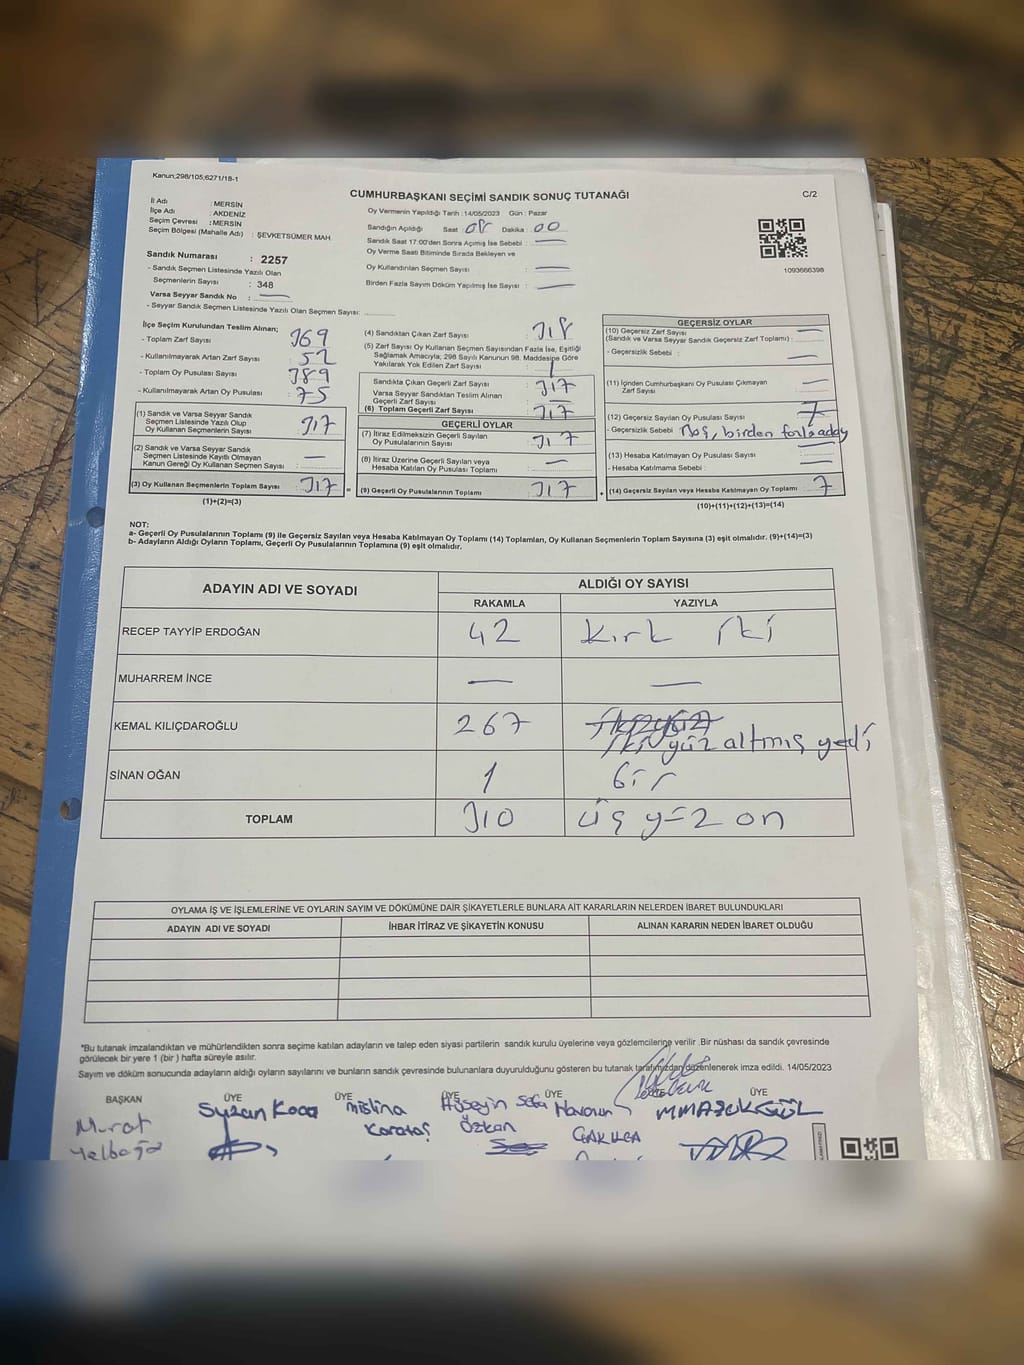 Kanun;298/105,6271/18-1
CUMHURBAŞKANI SEÇİMİ SANDIK SONUÇ TUTANAĞI
C/2
İl Adı : MERSİN
İlçe Adı : AKDENİZ
Seçim Çevresi : MERSİN
Seçim Bölgesi (Mahalle Adı) : ŞEVKETSÜMER MAH.
Sandık Numarası : 2257
- Sandık Seçmen Listesinde Yazılı Olan
Seçmenlerin Sayısı : 348
Varsa Seyyar Sandık No : —
- Seyyar Sandık Seçmen Listesinde Yazılı Olan Seçmen Sayısı:
Oy Vermenin Yapıldığı Tarih :14/05/2023 Gün : Pazar
Sandığın Açıldığı Saat : 08 Dakika : 00
Sandık Saat 17:00'den Sonra Açımış İse Sebebi : —
Oy Verme Saati Bitiminde Sırada Bekleyen ve
Oy Kullandırılan Seçmen Sayısı : —
Birden Fazla Sayım Döküm Yapılmış İse Sayısı : —
1093666398
İlçe Seçim Kurulundan Teslim Alınan;
- Toplam Zarf Sayısı : 369
- Kullanılmayarak Artan Zarf Sayısı : 52
- Toplam Oy Pusulası Sayısı : 389
- Kullanılmayarak Artan Oy Pusulası : 75
(1) Sandık ve Varsa Seyyar Sandık
Seçmen Listesinde Yazılı Olup
Oy Kullanan Seçmenlerin Sayısı : 317
(2) Sandık ve Varsa Seyyar Sandık
Seçmen Listesinde Kayıtlı Olmayan
Kanun Gereği Oy Kullanan Seçmen Sayısı : —
(3) Oy Kullanan Seçmenlerin Toplam Sayısı : 317
(1)+(2)=(3)
(4) Sandıktan Çıkan Zarf Sayısı : 318
(5) Zarf Sayısı Oy Kullanan Seçmen Sayısından Fazla İse, Eşitliği
Sağlamak Amacıyla; 298 Sayılı Kanunun 98. Maddesine Göre
Yakılarak Yok Edilen Zarf Sayısı : 1
Sandıkta Çıkan Geçerli Zarf Sayısı : 317
Varsa Seyyar Sandıktan Teslim Alınan
Geçerli Zarf Sayısı : —
(6) Toplam Geçerli Zarf Sayısı : 317
GEÇERLİ OYLAR
(7) İtiraz Edilmeksizin Geçerli Sayılan
Oy Pusulalarının Sayısı : 317
(8) İtiraz Üzerine Geçerli Sayılan veya
Hesaba Katılan Oy Pusulası Toplamı : —
= (9) Geçerli Oy Pusulalarının Toplamı : 317
GEÇERSİZ OYLAR
(10) Geçersiz Zarf Sayısı —
(Sandık ve Varsa Seyyar Sandık Geçersiz Zarf Toplamı) :
- Geçersizlik Sebebi : —
(11) İçinden Cumhurbaşkanı Oy Pusulası Çıkmayan
Zarf Sayısı : —
(12) Geçersiz Sayılan Oy Pusulası Sayısı : 7
- Geçersizlik Sebebi : Boş, birden fazla aday
(13) Hesaba Katılmayan Oy Pusulası Sayısı : —
- Hesaba Katılmama Sebebi : —
+ (14) Geçersiz Sayılan veya Hesaba Katılmayan Oy Toplamı : 7
(10)+(11)+(12)+(13)=(14)
NOT:
a- Geçerli Oy Pusulalarının Toplamı (9) ile Geçersiz Sayılan veya Hesaba Katılmayan Oy Toplamı (14) Toplamları, Oy Kullanan Seçmenlerin Toplam Sayısına (3) eşit olmalıdır. (9)+(14)=(3)
b- Adayların Aldığı Oyların Toplamı, Geçerli Oy Pusulalarının Toplamına (9) eşit olmalıdır.
ADAYIN ADI VE SOYADI ALDIĞI OY SAYISI
RAKAMLA YAZIYLA
RECEP TAYYİP ERDOĞAN 42 Kırk İki
MUHARREM İNCE — —
KEMAL KILIÇDAROĞLU 267 İki yüz altmış yedi
SİNAN OĞAN 1 bir
TOPLAM 310 üç yüz on
OYLAMA İŞ VE İŞLEMLERİNE VE OYLARIN SAYIM VE DÖKÜMÜNE DAİR ŞİKAYETLERLE BUNLARA AİT KARARLARIN NELERDEN İBARET BULUNDUKLARI
ADAYIN ADI VE SOYADI İHBAR İTİRAZ VE ŞİKAYETİN KONUSU ALINAN KARARIN NEDEN İBARET OLDUĞU
*Bu tutanak imzalandıktan ve mühürlendikten sonra seçime katılan adayların ve talep eden siyasi partilerin sandık kurulu üyelerine veya gözlemcilerine verilir .Bir nüshası da sandık çevresinde
görülecek bir yere 1 (bir ) hafta süreyle asılır.
Sayım ve döküm sonucunda adayların aldığı oyların sayılarını ve bunların sandık çevresinde bulunanlara duyurulduğunu gösteren bu tutanak tarafımızdan düzenlenerek imza edildi. 14/05/2023
BAŞKAN ÜYE ÜYE ÜYE ÜYE ÜYE
Murat Suzan Koca Mislina Hüseyin Sefa
Yelboğa Karataş Özkan